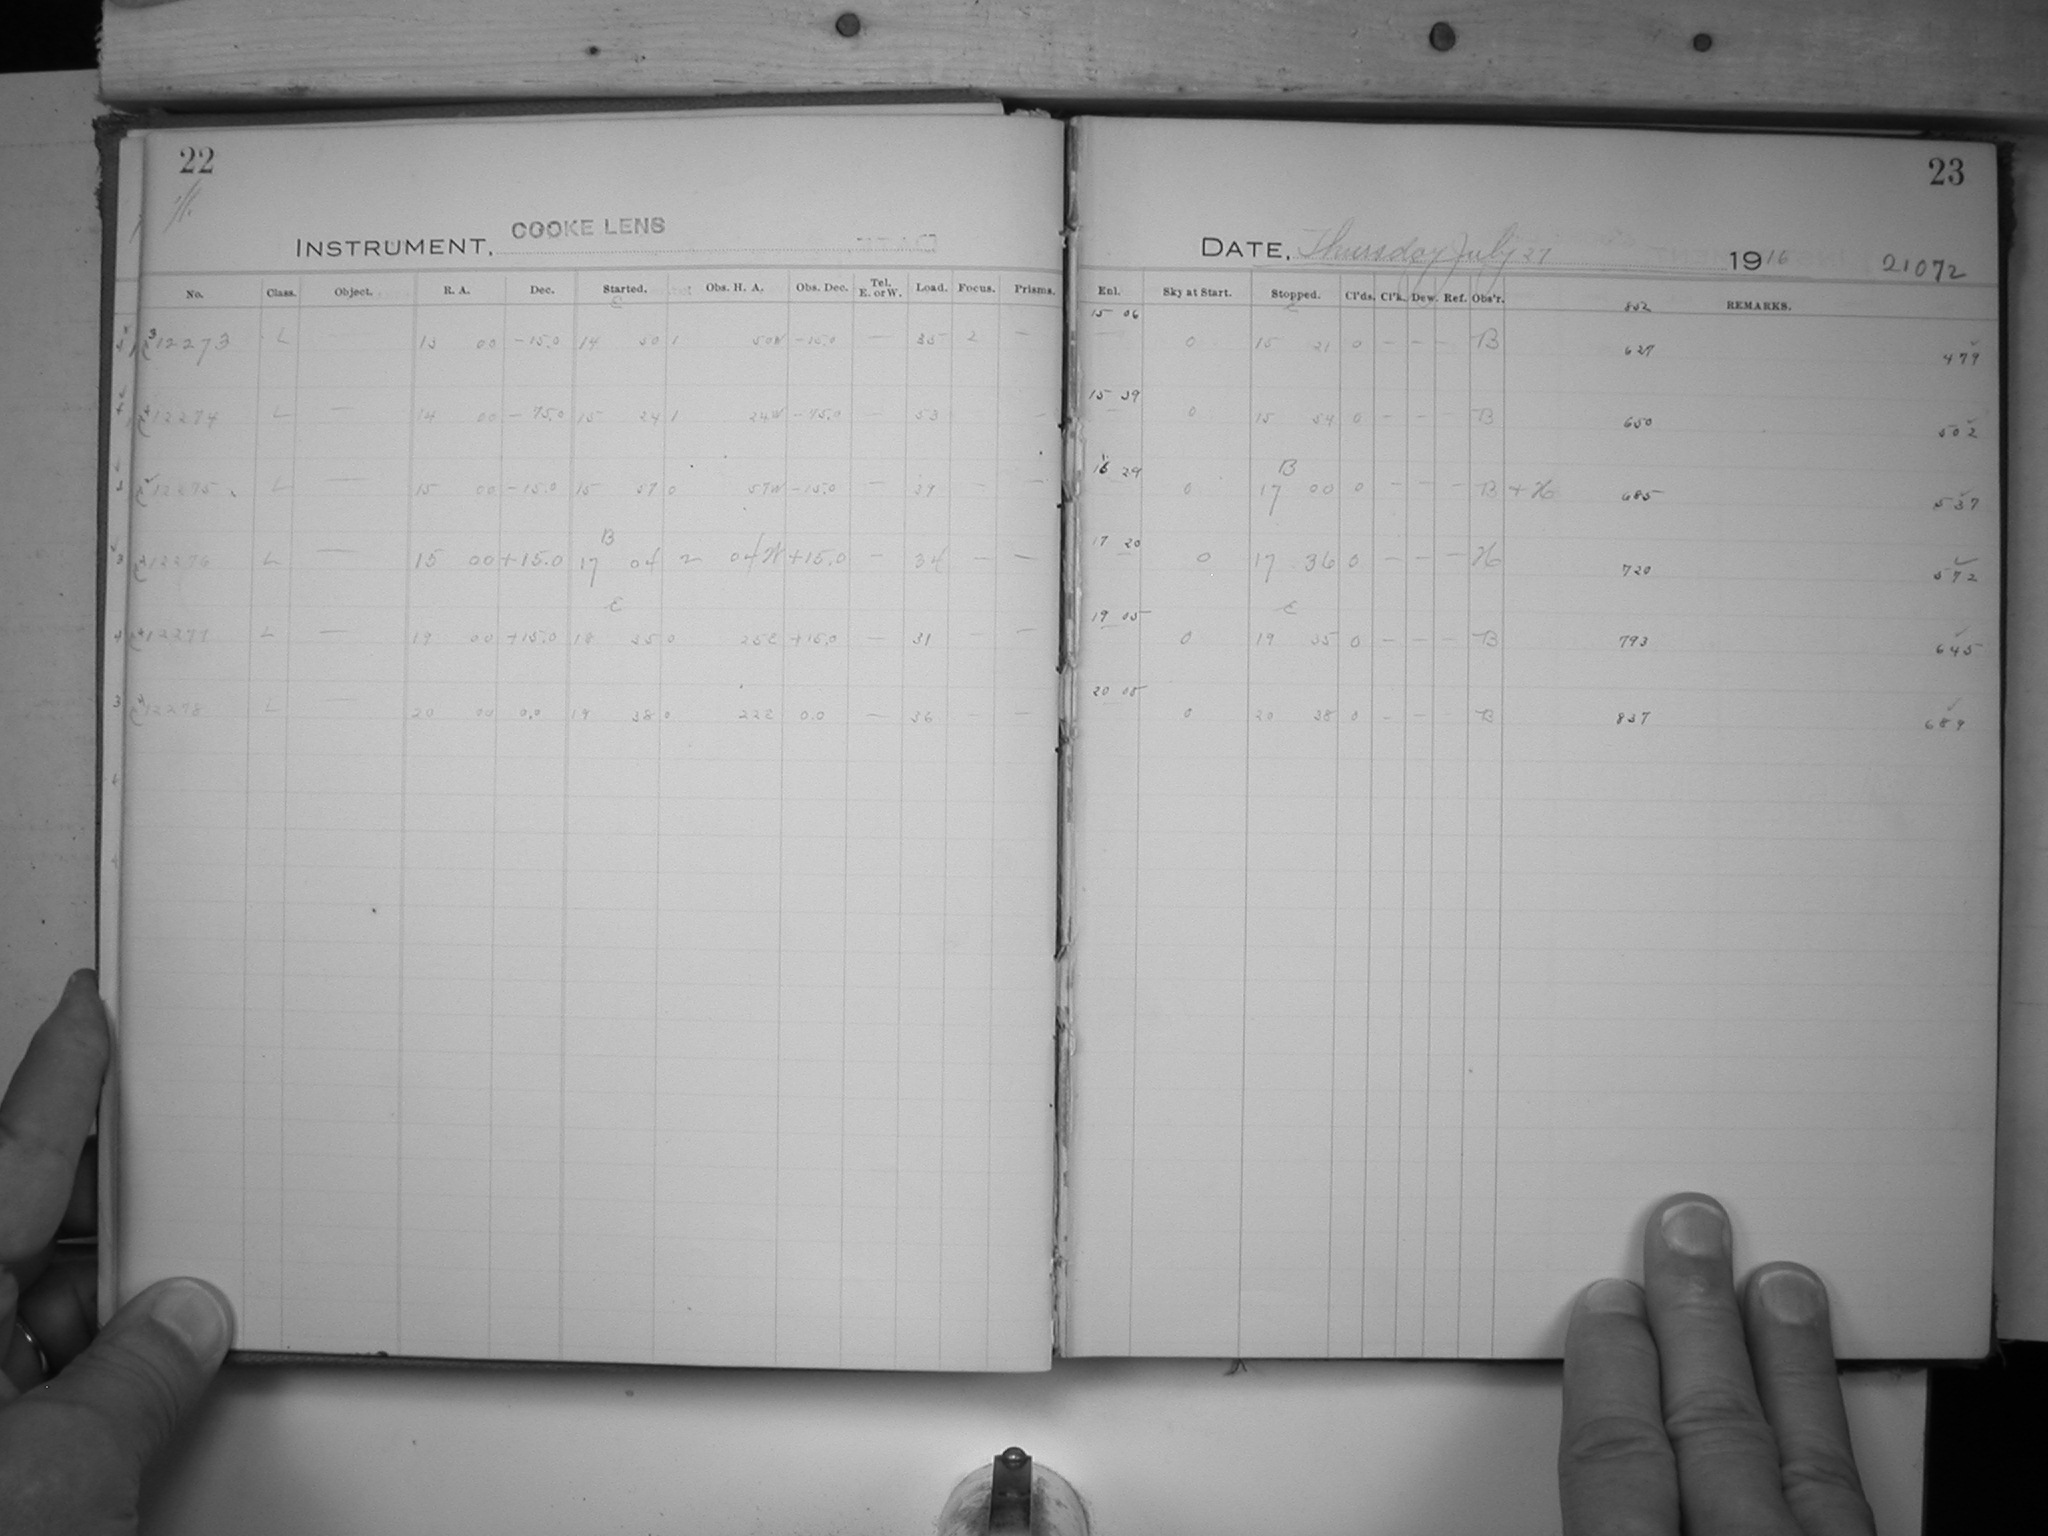 22
INSTRUMENT, COOKE LENS
No. Class. Object. R. A. Dec. Started. Obs. H. A. Obs. Dec. Tel. E. or W. Load. Focus. Prisms.
E
12273 L — 13 00 -15.0 14 50 1 50W -15.0 — 35 2 —
12274 L — 14 00 -75.0 15 24 1 24W -75.0 — 53 —
L — 15 00 -15.0 15 57 0 57W -15.0 — 39 — —
B
12276 L — 15 00 +15.0 17 04 2 04W +15.0 — 34 — —
E
12277 L — 19 00 +15.0 18 35 0 25E +15.0 — 31 — —
12278 L — 20 00 0.0 19 38 0 22E 0.0 — 36 — —
23
DATE, Thursday July 27 1916 21072
Enl. Sky at Start. Stopped. Cl'ds. Cl'k. Dew. Ref. Obs'r. 852 REMARKS.
15 06 E
— 0 15 21 0 - - - B 627 479
15 39
— 0 15 54 0 - - - B 650 502
16 29 B
0 17 00 0 - - - B + H 685 537
17 20
— 0 17 36 0 - - - H 720 572
19 05 E
— 0 19 35 0 - - - B 793 645
20 08
— 0 20 38 0 - - - B 837 689